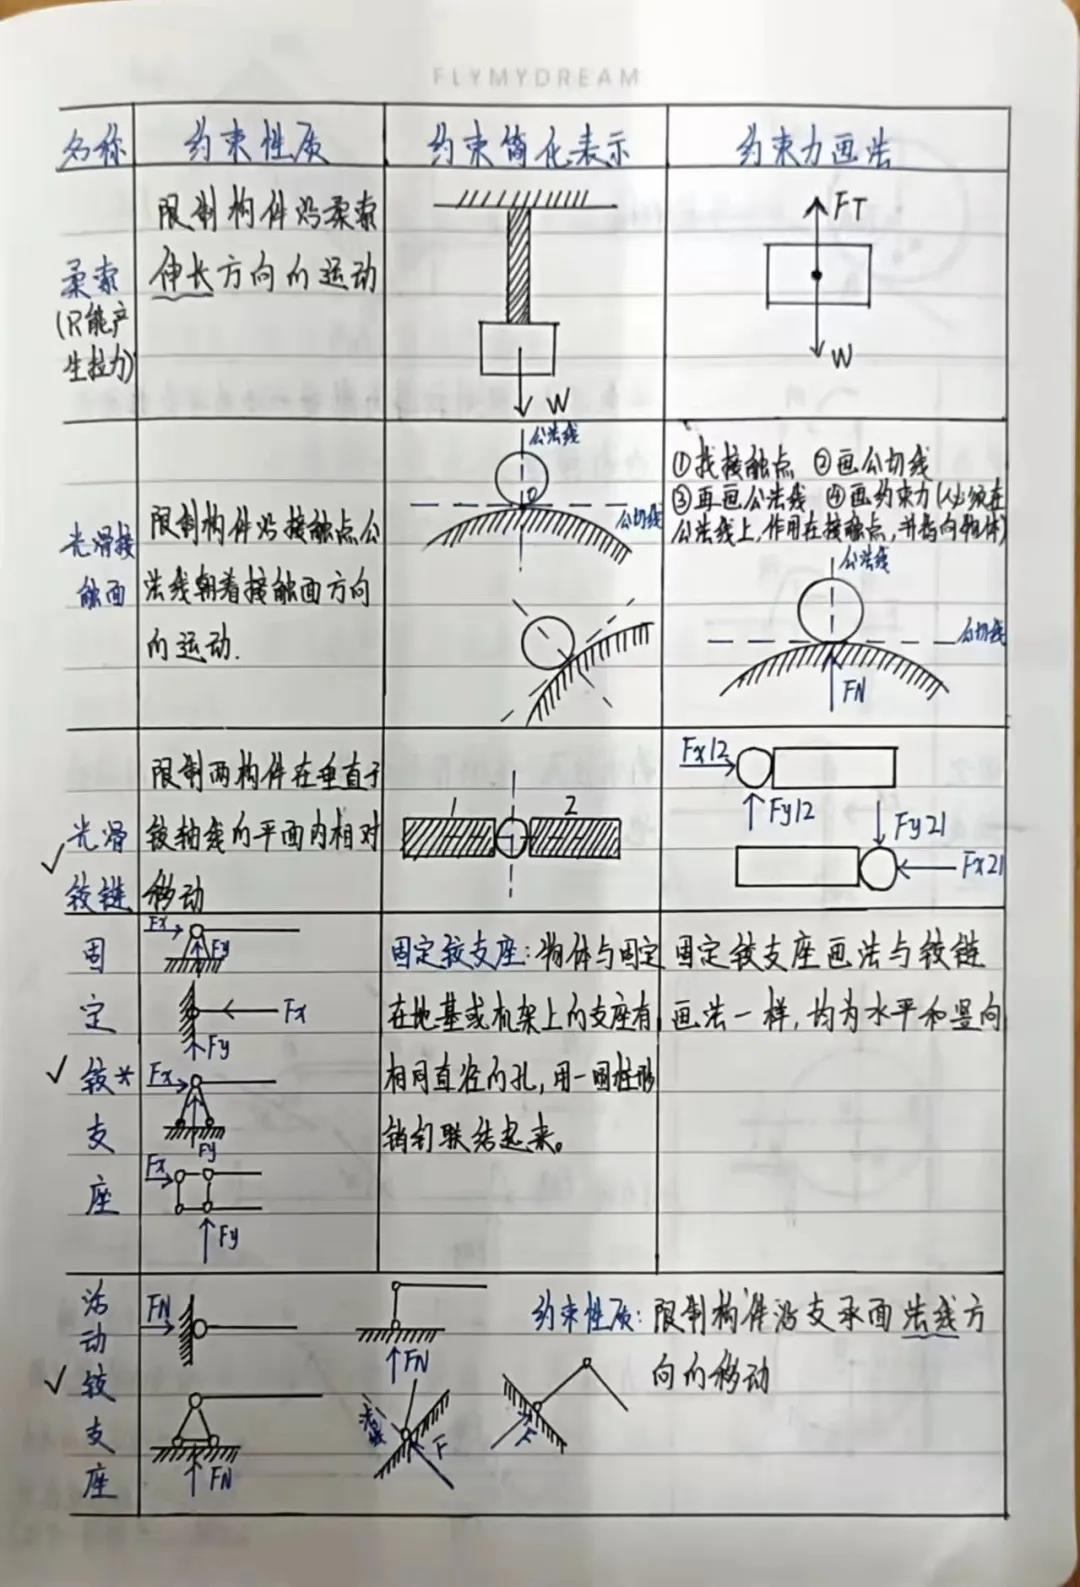 FLYMYDREAM
名称 约束性质 约束简化表示 约束力画法
柔索
(只能产
生拉力)
限制构件沿柔索
伸长方向的运动
W
FT
W
光滑接
触面
限制构件沿接触点公
法线朝着接触面方向
的运动.
公法线
公切线
①找接触点 ②画公切线
③再画公法线 ④画约束力(必须在
公法线上,作用在接触点,并指向物体)
公法线
公切线
FN
光滑
铰链
限制两构件在垂直于
铰轴线的平面内相对
移动
1 2
Fx12
Fy12
Fy21
Fx21
固
定
铰*
支
座
Fx
Fy
Fx
Fy
Fx
Fy
Fx
Fy
固定铰支座:物体与固定
在地基或机架上的支座有
相同直径的孔,用一圆柱形
销钉联结起来。
固定铰支座画法与铰链
画法一样,均为水平和竖向
活
动
铰
支
座
FN
FN
约束性质:限制构件沿支承面法线方
向的移动
FN
F
F